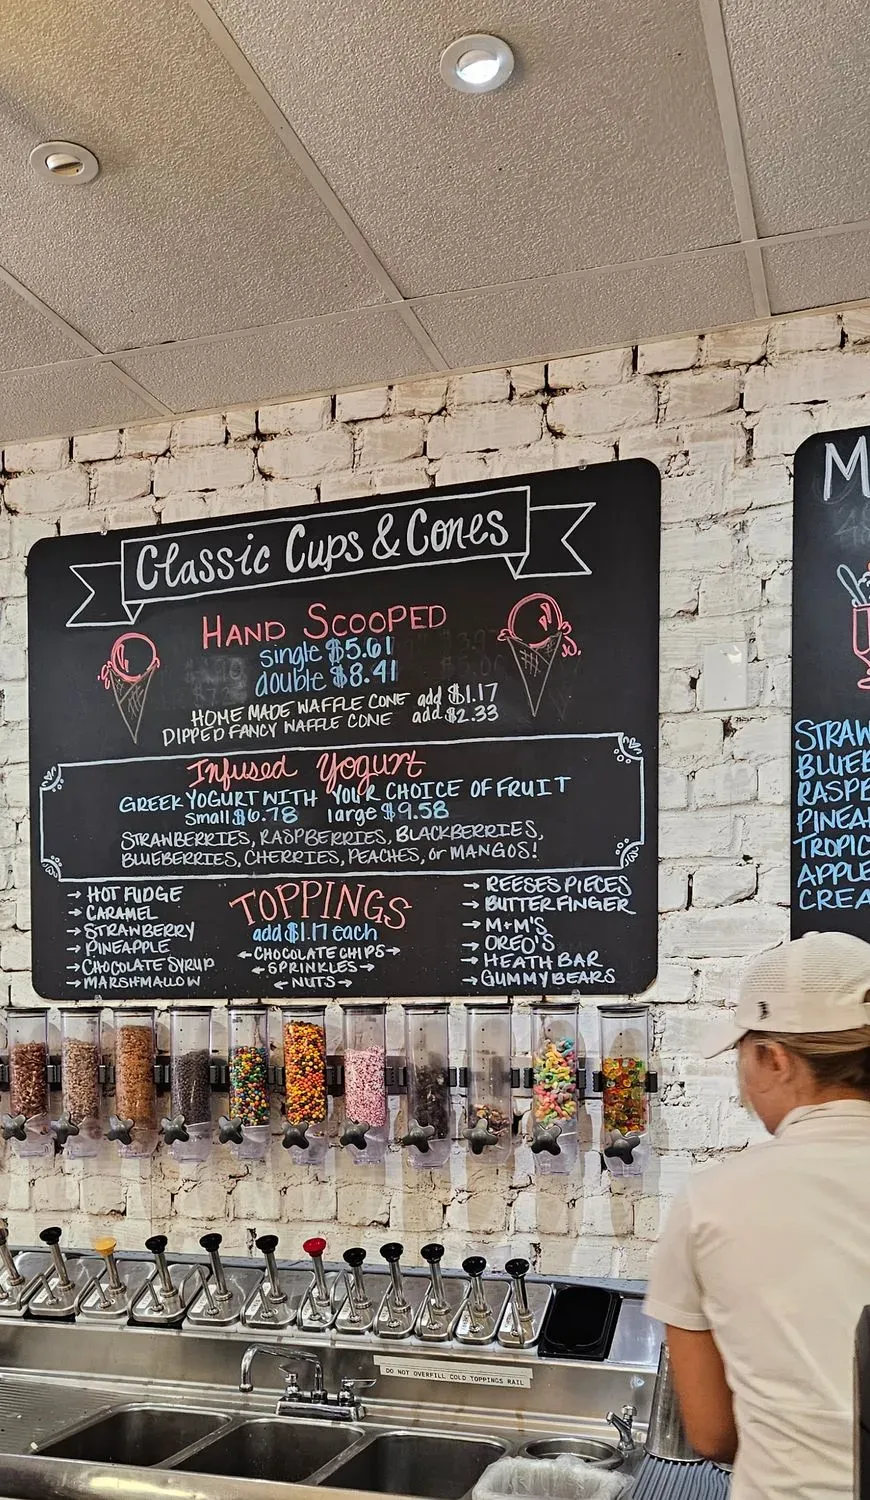 Classic Cups & Cones
HAND SCOOPED
single $5.61
double $8.41
HOME MADE WAFFLE CONE add $1.17
DIPPED FANCY WAFFLE CONE add $2.33
Infused Yogurt
GREEK YOGURT WITH YOUR CHOICE OF FRUIT
small $6.78 large $9.58
STRAWBERRIES, RASPBERRIES, BLACKBERRIES,
BLUEBERRIES, CHERRIES, PEACHES, or MANGOS!
TOPPINGS
add $1.17 each
→ HOT FUDGE
→ CARAMEL
→ STRAWBERRY
→ PINEAPPLE
→ CHOCOLATE SYRUP
→ MARSHMALLOW
← CHOCOLATE CHIPS →
← SPRINKLES →
← NUTS →
→ REESES PIECES
→ BUTTER FINGER
→ M+M'S
→ OREO'S
→ HEATH BAR
→ GUMMY BEARS
M
STRAW
BLUEB
RASPB
PINEA
TROPIC
APPLE
CREA
DO NOT OVERFILL COLD TOPPINGS RAIL